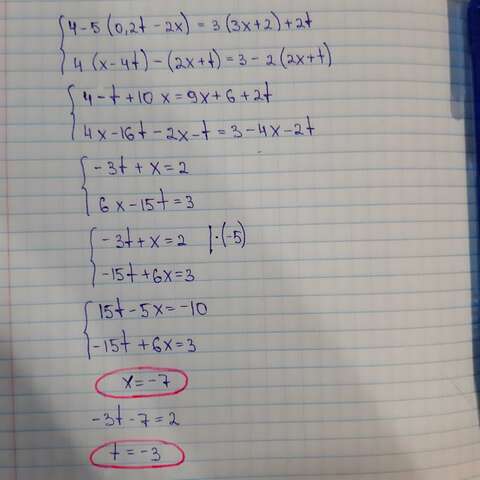 4-5(0,2t-2x)=3(3x+2)+2t
4(x-4t)-(2x+t)=3-2(2x+t)
4-t+10x=9x+6+2t
4x-16t-2x-t=3-4x-2t
-3t+x=2
6x-15t=3
-3t+x=2 |·(-5)
-15t+6x=3
15t-5x=-10
-15t+6x=3
x=-7
-3t-7=2
t=-3